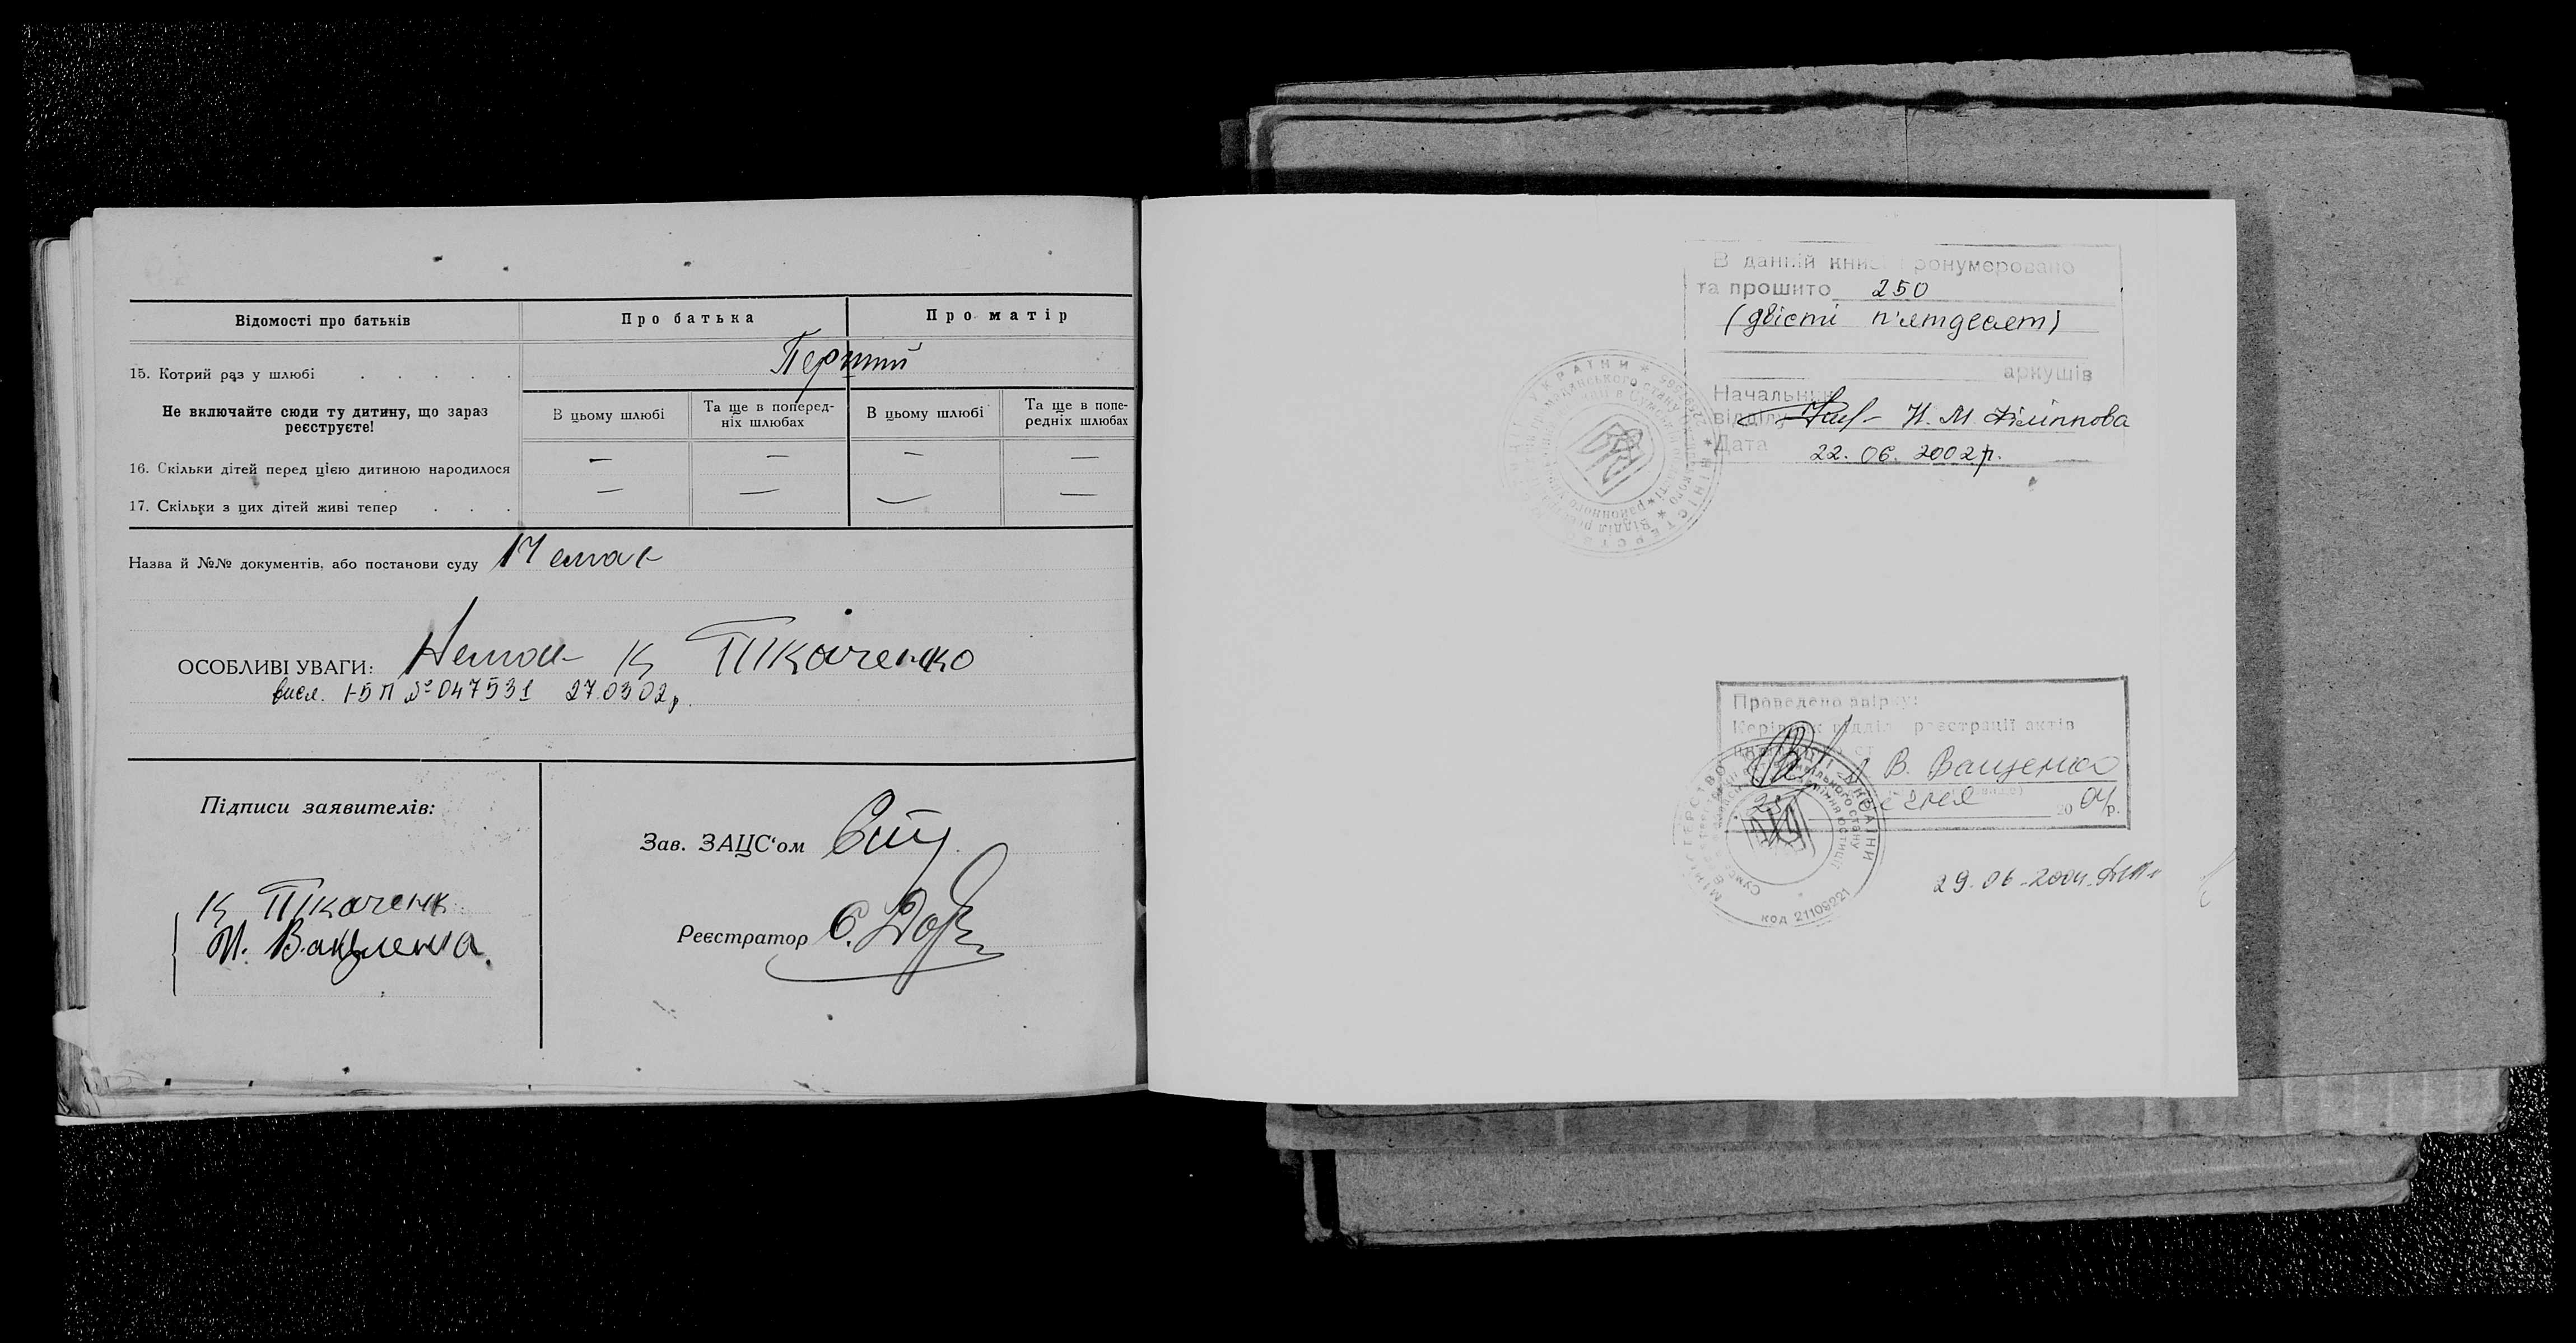 Відомості про батьків
Про батька
Про матір
15. Котрий раз у шлюбі . . . . .
Перший
Не включайте сюди ту дитину, що зараз реєструєте!
В цьому шлюбі
Та ще в попередніх шлюбах
В цьому шлюбі
Та ще в попередніх шлюбах
16. Скільки дітей перед цією дитиною народилося — — — —
17. Скільки з цих дітей живі тепер . . . — — — —
Назва й №№ документів, або постанови суду Немає
ОСОБЛИВІ УВАГИ: Немає К Ткаченко
висл. І-БП №047531 27.03 02р.
Підписи заявителів:
К Ткаченк
М. Вакуленка
Зав. ЗАЦС'ом
Реєстратор
В данній книзі пронумеровано
та прошито 250
(двісті п'ятдесят)
аркушів
Начальник
відділу Н. М. Філіппова
Дата 22. 06. 2002р.
Проведено звірку:
Керівник відділу реєстрації актів
В. Ващенко
2004р.
код 21109221
29-06-2004